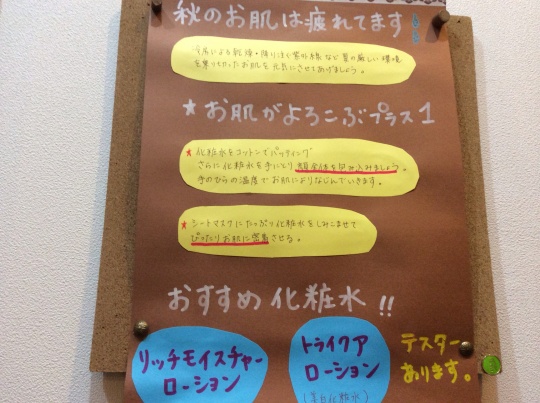 秋のお肌は疲れてます
冷房による乾燥・降り注ぐ紫外線など夏の厳しい環境
を乗り切ったお肌を元気にさせてあげましょう。
★お肌がよろこぶプラス1
★化粧水をコットンでパッティング
さらに化粧水を手にとり顔全体を包み込みましょう。
手のひらの温度でお肌によりなじんでいきます。
★シートマスクにたっぷり化粧水をしみこませて
ぴったりお肌に密着させる。
おすすめ化粧水!!
リッチモイスチャー
ローション
トライクア
ローション
(美白化粧水)
テスター
あります。